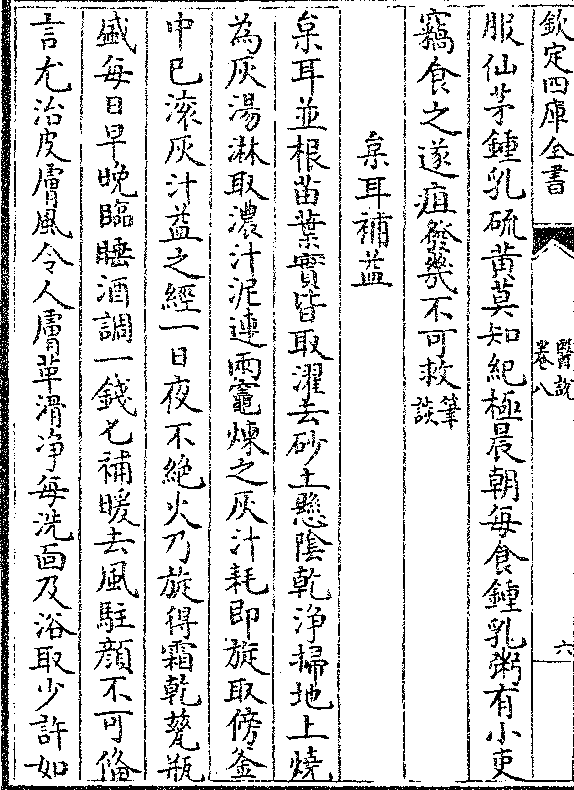 欽定四庫全書
醫說
卷八
六
服仙茅鍾乳硫黄莫知紀極晨朝每食鍾乳粥有小吏
竊食之遂疽發幾不可救筆談
枲耳補益
枲耳並根苗葉實皆取濯去砂土懸陰乾净掃地上燒
為灰湯淋取濃汁泥連兩竈煉之灰汁耗即旋取傍釜
中已滚灰汁益之經一日夜不絶火乃旋得霜乾甆瓶
盛每日早晚臨睡酒調一錢匕補暖去風駐顔不可備
言尤治皮膚風令人膚革滑净每洗面及浴取少許如